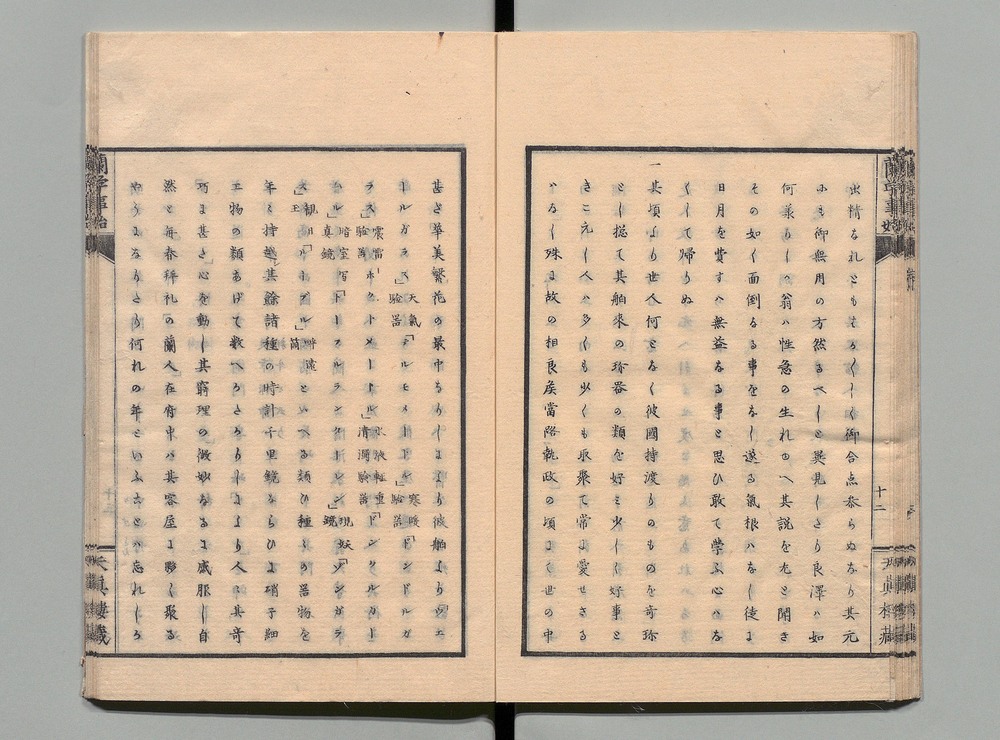 出精なれともそろ〳〵く御合点参らぬなり其元
にも御無用の方然るへしと異見したり良澤ハ如
何承りしハ翁ハ性急の生れゆへ其説を尤と聞き
その如く面倒なる事をなし遂る氣根ハなし徒に
日月を費すハ無益なる事と思ひ敢て學ふ心ハな
くして帰りぬ
一其頃より世人何となく彼國持渡りのものを奇珍
とし揔て其舶來の珍器の類を好ミ少しく好事と
きこえし人ハ多くも少くも取聚て常に愛せさる
ハなし殊に故の相良矦當路執政の頃にて世の中
甚き華美繁花の最中なりしにより彼舶より「ウエ
ールガラス」天氣驗器「テルモメートル」寒暖驗器「ドンドルガ
ラス」震雷驗器「ホクトメートル」水液輕重清濁驗器「ドンクルカー
ムル」暗室写真鏡「トーフルランターレン」現妖鏡「ソンガラ
ス」観日玉「ルーブル」呼遠筒といへる類ひ種々の器物を
年々持越其餘諸種の時計千里鏡ならひに硝子細
工物の類あげて数へかたかりしにより人々其奇
巧に甚き心を動し其窮理の微妙なるに感服し自
然と毎春拜礼の蘭人在府中ハ其客屋に夥く聚る
やうになりたり何れの年といふことハ忘れしか
蘭学事始
十二
天真樓藏